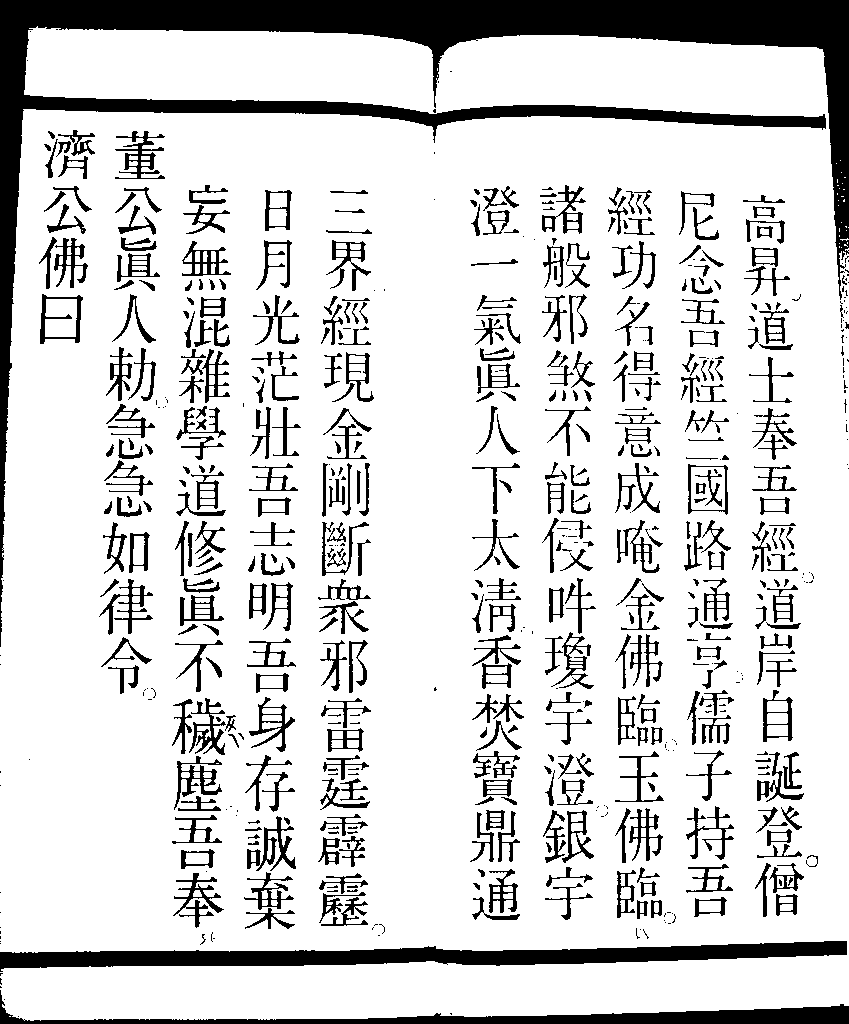 高昇道士奉吾經道岸自誕登僧
尼念吾經竺國路通亨儒子持吾
經功名得意成唵金佛臨玉佛臨
諸般邪煞不能侵吽瓊宇澄銀宇
澄一氣眞人下太淸香焚寶鼎通
三界經現金剛斷衆邪雷霆霹靂
日月光茫壯吾志明吾身存誠棄
妄無混雜學道修眞不穢塵吾奉
董公眞人勅急急如律令
濟公佛曰